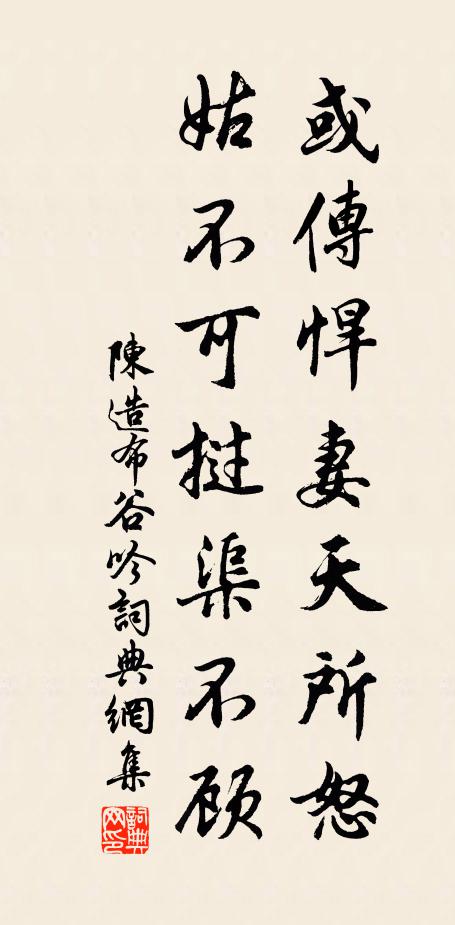 或傳悍妻天所怒
姑不可撻渠不顧
陳造布谷吟詞典網集
詞典网印